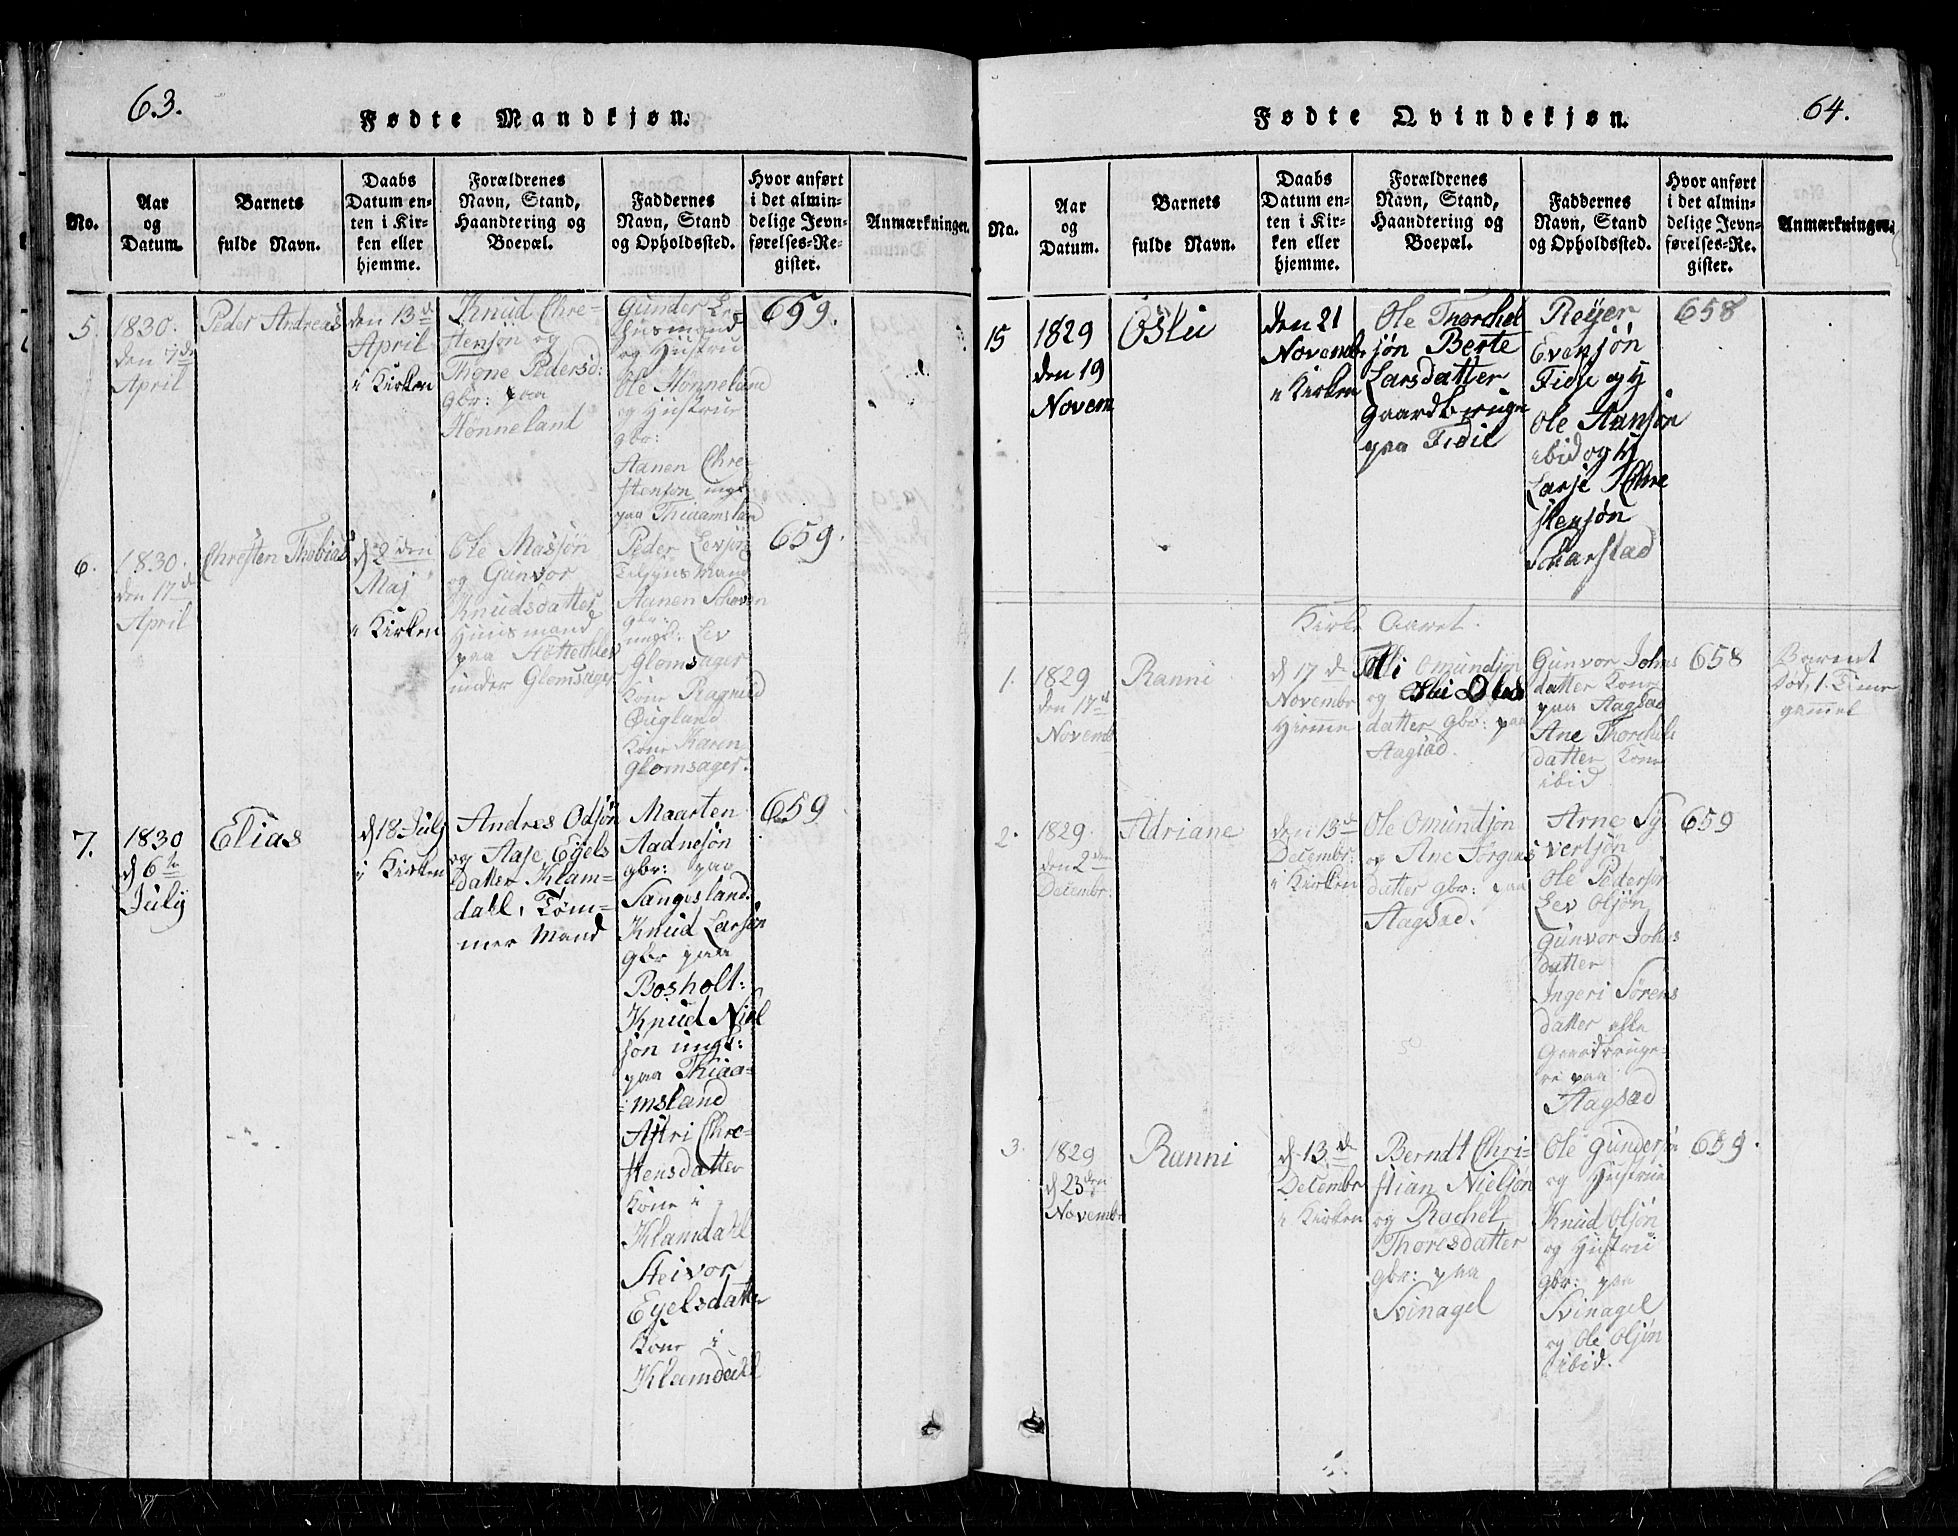 63.
Fødte Mandkjøn.
No.
Aar
og
Datum.
Barnets
fulde Navn.
Daabs
Datum en-
ten i Kir-
ken eller
hjemme.
Forældrenes
Navn, Stand,
Haandtering og
Boepæl.
Faddernes
Navn, Stand
og Opholdssted.
Hvor anført
i det almin-
delige Jevn-
førelses-Re-
gister.
Anmærkninger.
5.
1830.
den 7de
April
Peder Andreas
den 13de
April
i Kirken
Knud Chre-
stensøn og
Thone Pedersd:
gbr: paa
Hønneland
Gunder
Huusmand
og Hustru
Ole Hønneland
og Hustrue
gbr:
Aanen Chre-
stensøn ungk
paa Thiaamsland
659.
6.
1830.
den 17de
April
Chresten Thobias
d 2den
Maj
i Kirken
Ole Massøn
og Gunvor
Knudsdatter
Huusmand
paa
under Glomsager
Peder Levsøn
Tilsynsmand
Aanen
gbr:
ungk: Lev
Glomsager
Kone Ragnild
Øugland
Kone Karen
Glomsager.
659.
7.
1830
d 6te
July
Elias
d 18 July
i Kirken
Andres Odsøn
og Aase Eyels
datter Klam-
dahl, Tøm-
mer Mand
Maarten
Aadnesøn
gbr: paa
Sangesland.
Knud Larsøn
gbr paa
Bosholt:
Knud Niel
søn ungk:
paa Thiaa-
msland
Astri Chre-
stensdatter
Kone i
Klamdahl
Steivor
Eyelsdatter
Kone i
Klamdahl
659
64.
Fødte Qvindekjøn.
No.
Aar
og
Datum.
Barnets
fulde Navn.
Daabs
Datum en-
ten i Kir-
ken eller
hjemme.
Forældrenes
Navn, Stand,
Haandtering og
Boepæl.
Faddernes
Navn, Stand
og Opholdssted.
Hvor anført
i det almin-
delige Jevn-
førelses-Re-
gister.
Anmærkninger.
15
1829
den 19
Novem
Oslu
den 21
Novembr
i Kirken
Ole Thorchel
søn Berte
Larsdatter
Gaardbruge
paa Fidie
Reyer
Evensøn
Fidie og H
Ole Aansøn
ibid og H
Larse Chre
stensøn
Scharstad
658
Kirke Aaret.
1.
1829
den 17de
Novembr
Ranni
d 17de
Novembr
Hiemme
Omundsøn
og Oslu Ols
datter gbr: paa
Aagsad.
Gunvor Johns
datter Kone
paa Aagsad
Ane Thorchels
datter Kone
ibid
658
Barnet
død, 1. Time
gammel
2.
1829.
den 2den
Decembr:
Adriane
den 13de
Decembr:
i Kirken
Ole Omundsøn
og Ane Jørgens
datter gbr: paa
Aagsad.
Arne Sy
vertsøn
Ole Pedersøn
Lev Olsøn
Gunvor Johns
datter
Ingeri Sørens
datter alle
Gaardbruge-
re paa
Aagsad
659
3.
1829
d 23den
Novembr
Ranni
d 13de
Decembr
i Kirken
Berndt Chri-
stian Nielsøn
og Rachel
Thoresdatter
gbr: paa
Svinagel
Ole Gundersøn
og Hustrue
Knud Olsøn
og Hustru
gbr: paa
Svinagel
og Ole Olsøn
ibid.
659.